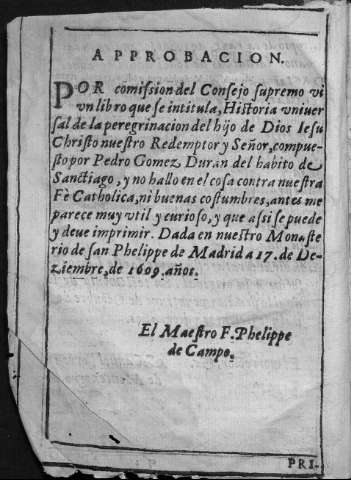 APPROBACION.
POR comission del Consejo supremo vi
vn libro que se intitula, Historia vniuer
sal de la peregrinacion del hijo de Dios Iesu
Christo nuestro Redemptor y Señor, compue-
sto por Pedro Gomez Duran del habito de
Sanctiago, y no hallo en el cosa contra nuestra
Fè Catholica, ni buenas costumbres, antes me
parece muy vtil y curioso, y que assi se puede
y deue imprimir. Dada en nuestro Monaste
rio de san Phelippe de Madrid a 17. de De-
ziembre, de 1609. años.
El Maestro F. Phelippe
de Campo.
PRI-